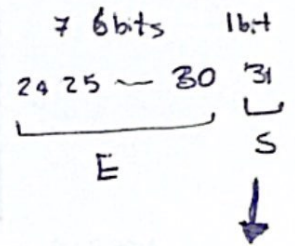 7 6bits 1bit
24 25 — 30 31
E S